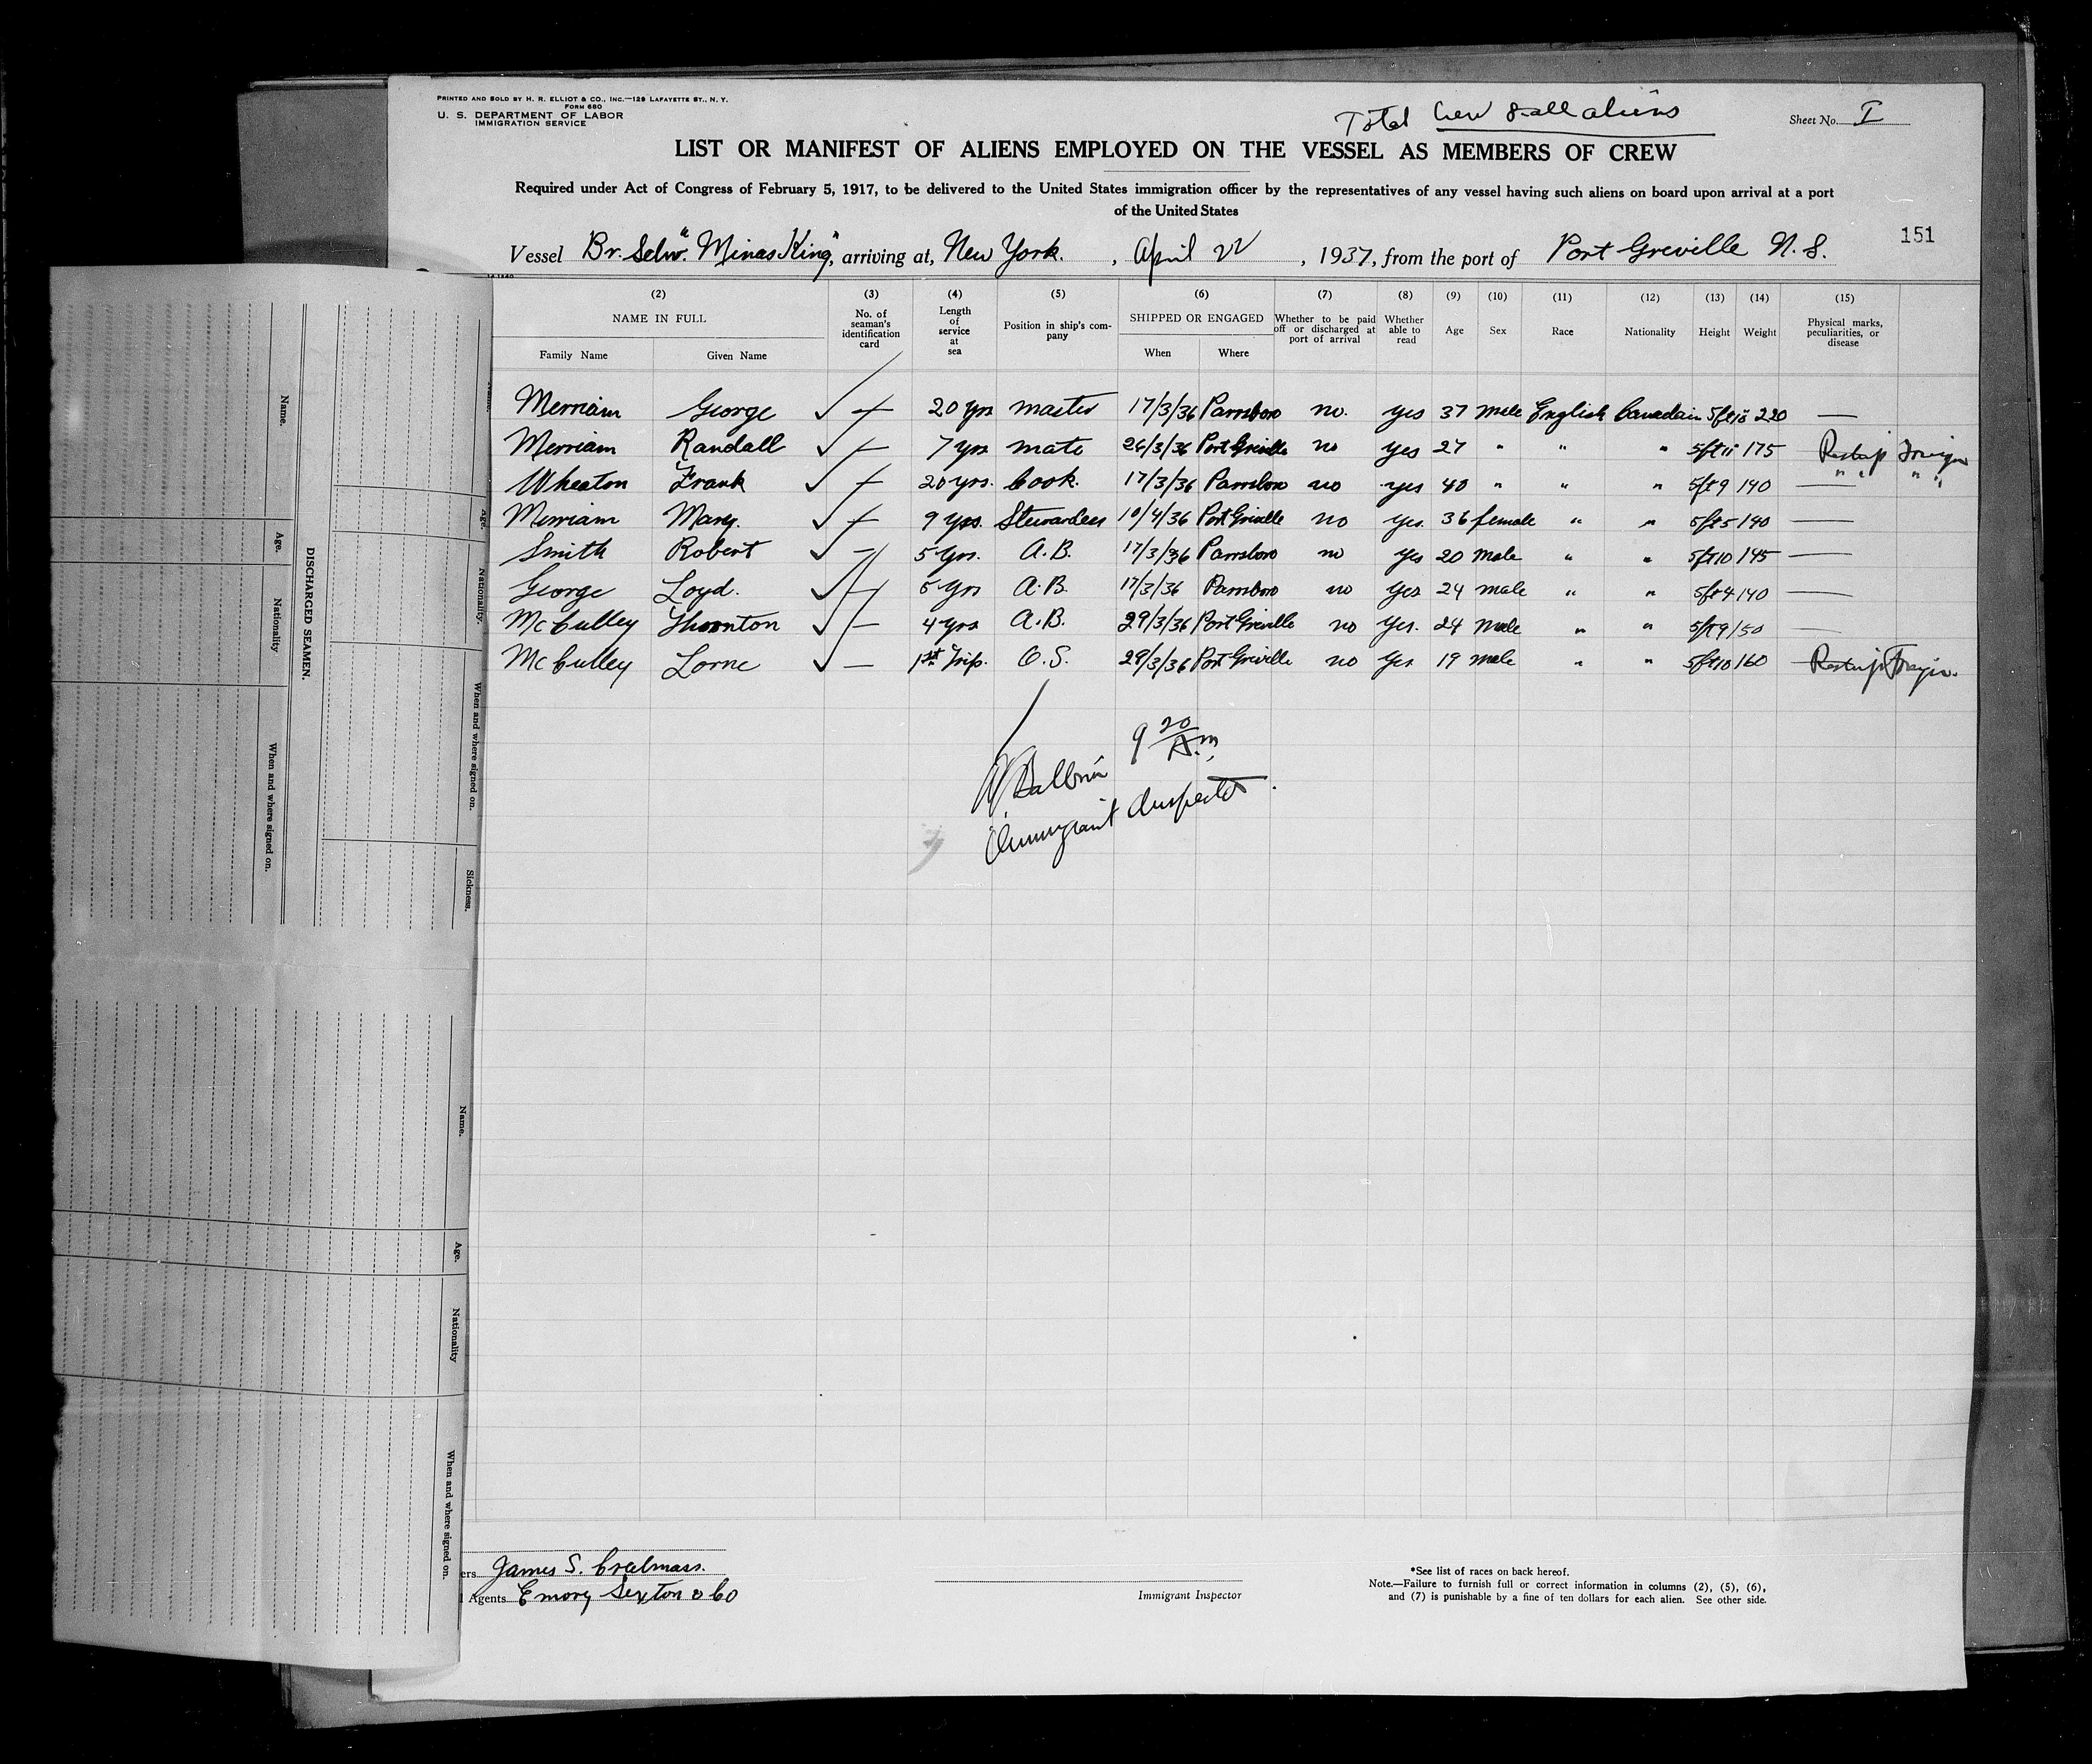 PRINTED AND SOLD BY H. R. ELLIOT & CO., INC.—129 LAFAYETTE ST., N. Y.
FORM 680
U. S. DEPARTMENT OF LABOR
IMMIGRATION SERVICE
Total Crew 8 all aliens
Sheet No. I
LIST OR MANIFEST OF ALIENS EMPLOYED ON THE VESSEL AS MEMBERS OF CREW
Required under Act of Congress of February 5, 1917, to be delivered to the United States immigration officer by the representatives of any vessel having such aliens on board upon arrival at a port
of the United States
151
Vessel Br. Schr. "Minas King", arriving at, New York. , April 22 , 1937, from the port of Port Greville N.S.
(2) NAME IN FULL Family Name Given Name (3) No. of seaman's identification card (4) Length of service at sea (5) Position in ship's company (6) SHIPPED OR ENGAGED When Where (7) Whether to be paid off or discharged at port of arrival (8) Whether able to read (9) Age (10) Sex (11) Race (12) Nationality (13) Height (14) Weight (15) Physical marks, peculiarities, or disease
Merriam George ✓ — 20 yrs master 17/3/36 Parrsboro no. yes 37 male English Canadain 5ft 10 220 —
Merriam Randall ✓ — 7 yrs mate 26/3/36 Port Greville no yes 27 " " " 5ft 11 175
Wheaton Frank ✓ — 20 yrs. Cook. 17/3/36 Parrsboro no yes 40 " " " 5ft 9 140 —
Merriam Mary. ✓ — 9 yrs. Stewardess 10/4/36 Port Greville no yes. 36 female " " 5ft 5 140 —
Smith Robert ✓ — 5 yrs. A.B. 17/3/36 Parrsboro no yes 20 male " " 5ft 10 145 —
George Loyd. ✓ — 5 yrs A.B. 17/3/36 Parrsboro no yes 24 male " " 5ft 4 140 —
McCulley Thornton ✓ — 4 yrs A.B. 29/3/36 Port Greville no yes. 24 male " " 5ft 9 150 —
McCulley Lorne ✓ — 1st Trip. O.S. 29/3/36 Port Greville no yes 19 male " " 5ft 10 160
9 20 A.m.
Immigrant Inspector.
Name. Age. Nationality. When and where signed on. Sickness.
DISCHARGED SEAMEN.
Name. Age. Nationality When and where signed on.
Name. Age. Nationality When and where signed on.
ers James S. Creelman.
Agents Emory Sexton & Co
Immigrant Inspector
*See list of races on back hereof.
Note.—Failure to furnish full or correct information in columns (2), (5), (6),
and (7) is punishable by a fine of ten dollars for each alien. See other side.